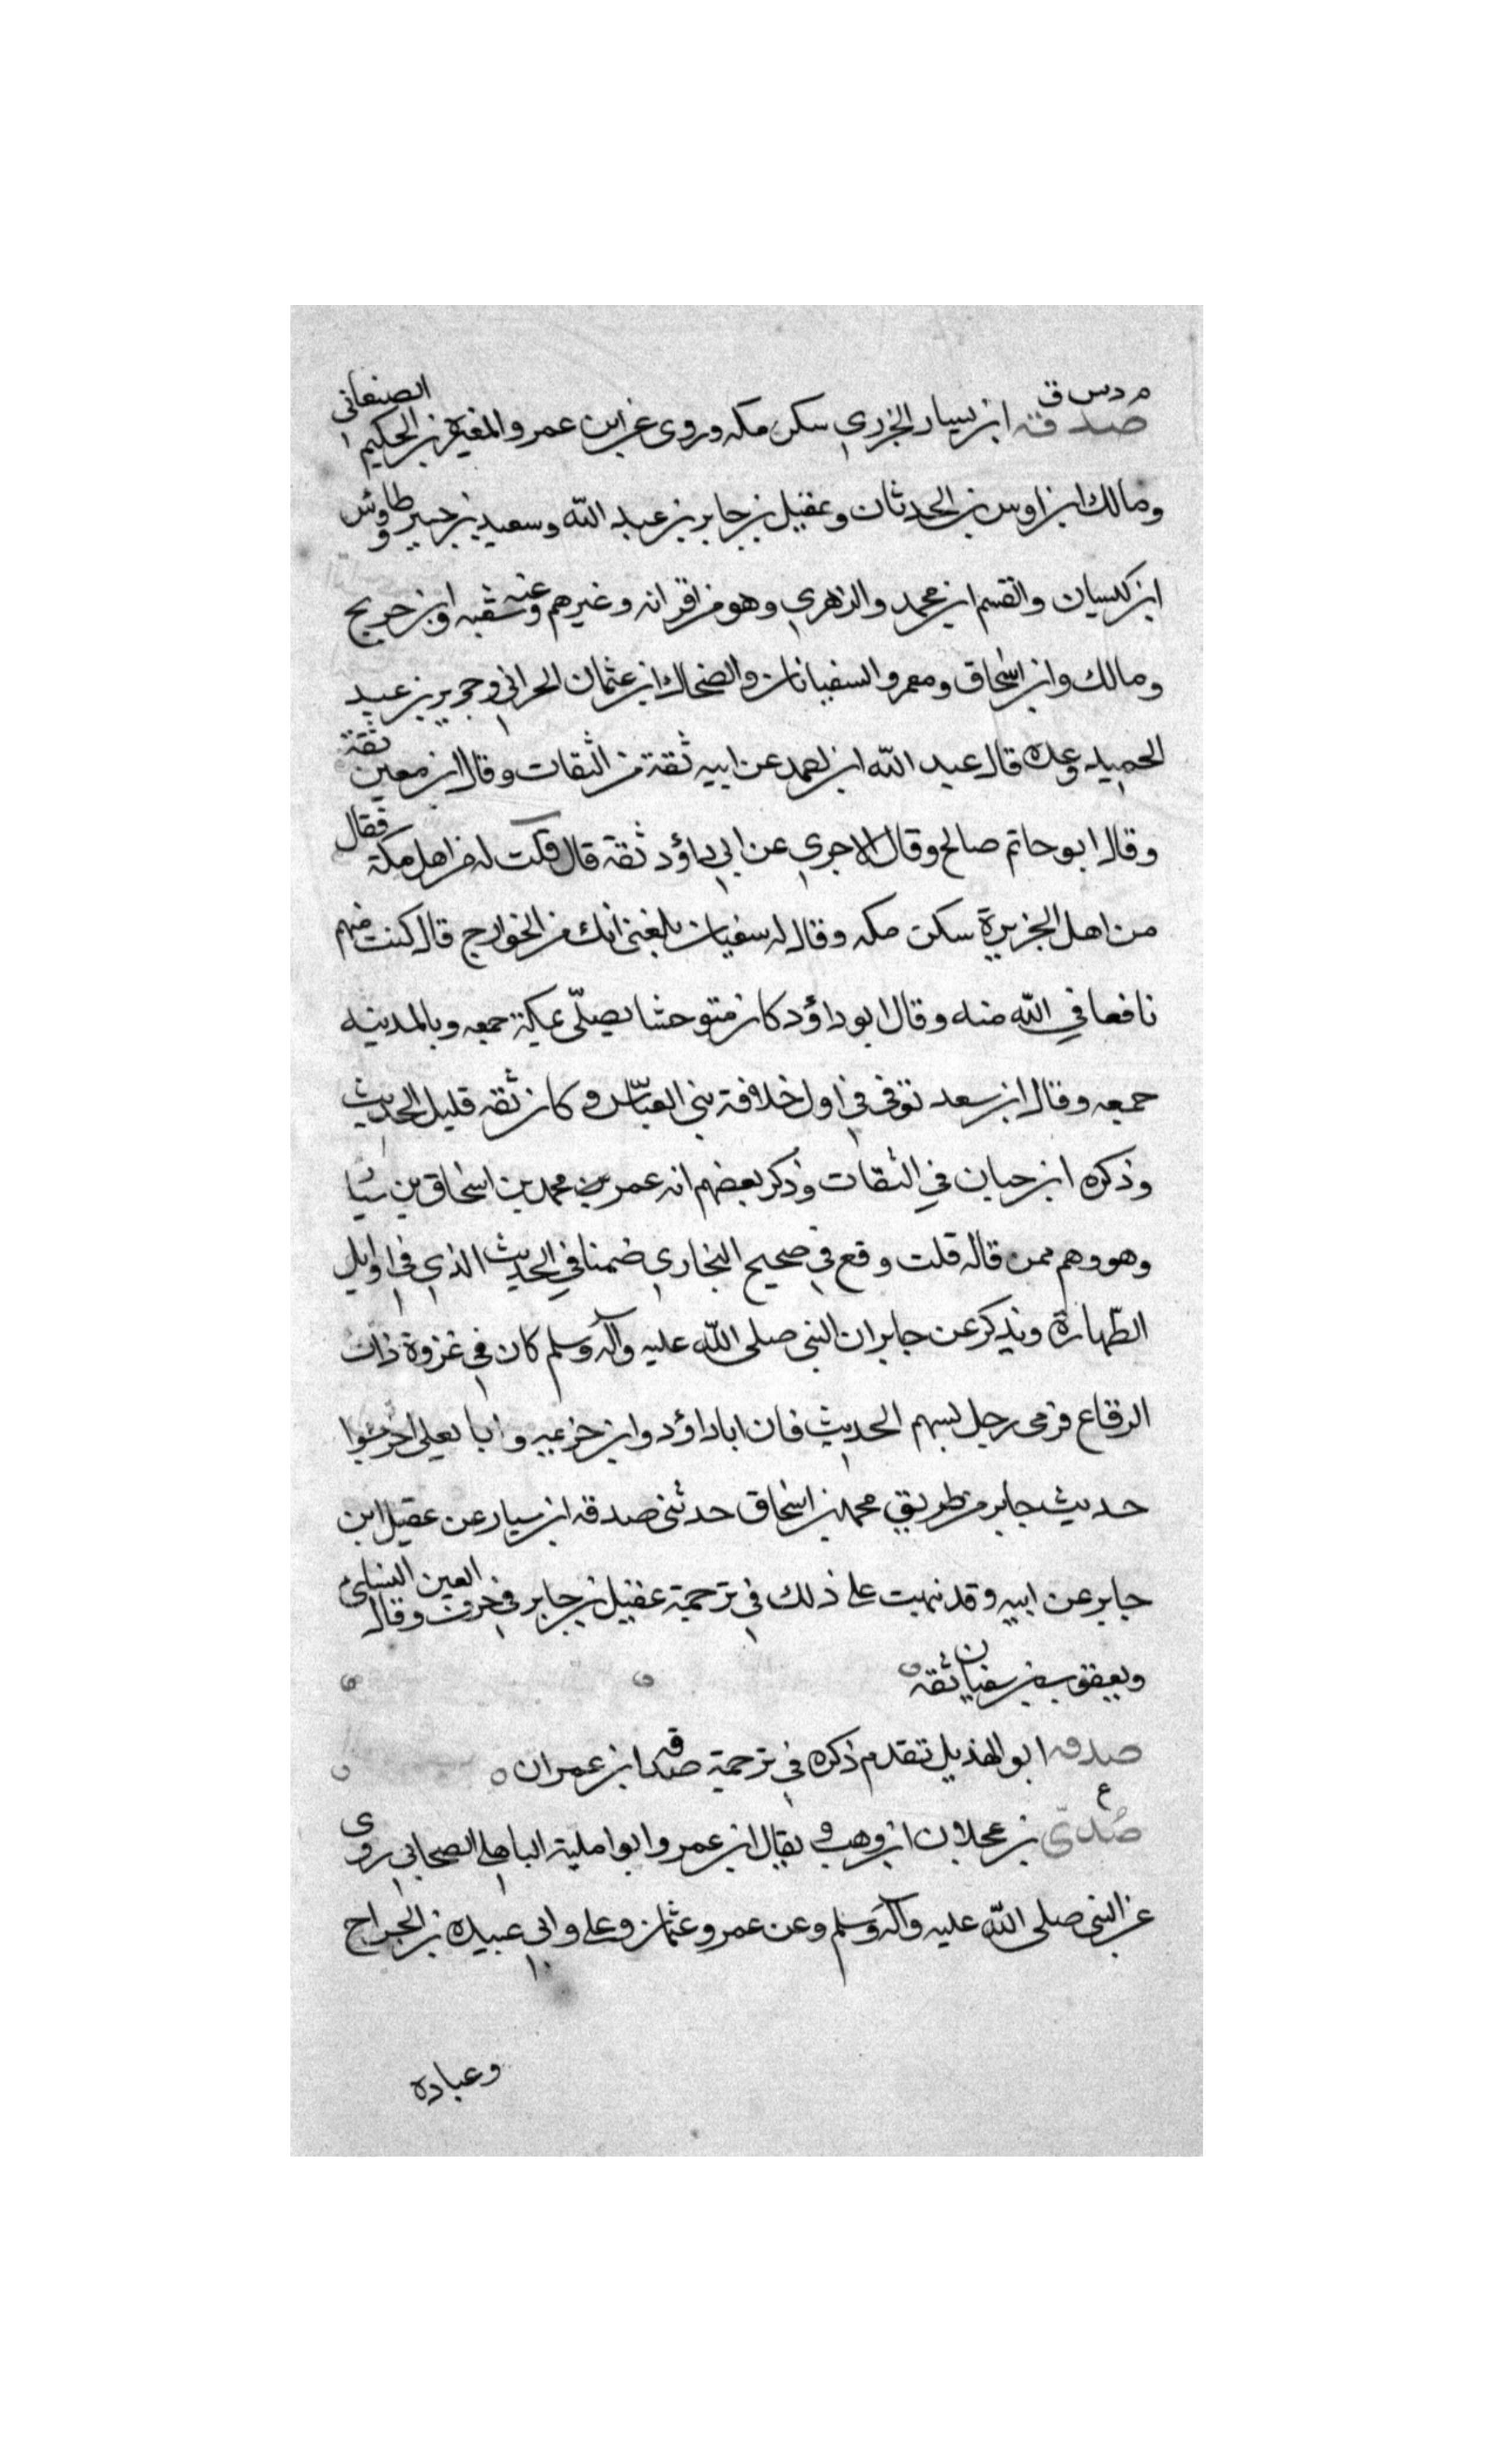 م د س ق
صدقة ابن يسار الجزري سكن مكه وروى عن ابن عمر والمغيرة بن الحكيم الصنعاني
ومالك ابن اوس بن الحدثان وعقيل بن جابر بن عبد الله وسعيد بن جبير وطاوس
ابن كيسان والقسم ابن محمد والزهري وهو من اقرانه وغيرهم وعنه شعبه وابن جريج
ومالك وابن اسحاق ومعمر والسفيانان والضحاك ابن عثمان الحراني وجرير بن عبد
الحميد وعده قال عبد الله ابن احمد عن ابيه ثقة من الثقات وقال ابن معين ثقة
وقال ابو حاتم صالح وقال الاجري عن ابي داؤد ثقة قال قلت له من اهل مكة فقال
من اهل الجزيرة سكن مكه وقال له سفيان بلغني أنك من الخوارج قال كنت منهم
نافعافي الله منه وقال ابو داؤد كان متوحشا يصلّي بمكة جمعه وبالمدينه
جمعه وقال ابن سعد توفي في اول خلافة بني العبّاس وكان ثقه قليل الحديث
وذكره ابن حبان في الثقات وذكر بعضهم انه عمر بن محمد بن اسحاق بن يسا
وهو وهم ممن قاله قلت وقع في صحيح البخاري ضمنا في الحديث الذي في اوايل
الطّهارة ويذكر عن جابر ان النبي صلى الله عليه وآله وسلم كان في غزوة ذات
الرقاع فرمى رجل بسهم الحديث فان ابا داؤد وابن خزيمه وابا يعلى اخرجوا
حديث جابر من طريق محمد بن اسحاق حدثني صدقه ابن يسار عن عقيل ابن
جابر عن ابيه وقد نبهت على ذلك في ترجمة عقيل بن جابر في حرف العين وقال النسائي
ويعقوب بن سفيان ثقه
صدقه ابو الهذيل تقدم ذكره في ترجمة صدقه ابن عمران
ع
صُدىّ بن عجلان ابن وهب ويقال ابن عمرو ابو امامة الباهلي الصحابي روى
عن النبي صلى الله عليه وآله وسلم وعن عمر وعثمان وعلي وابي عبيده بن الجراح
وعباده